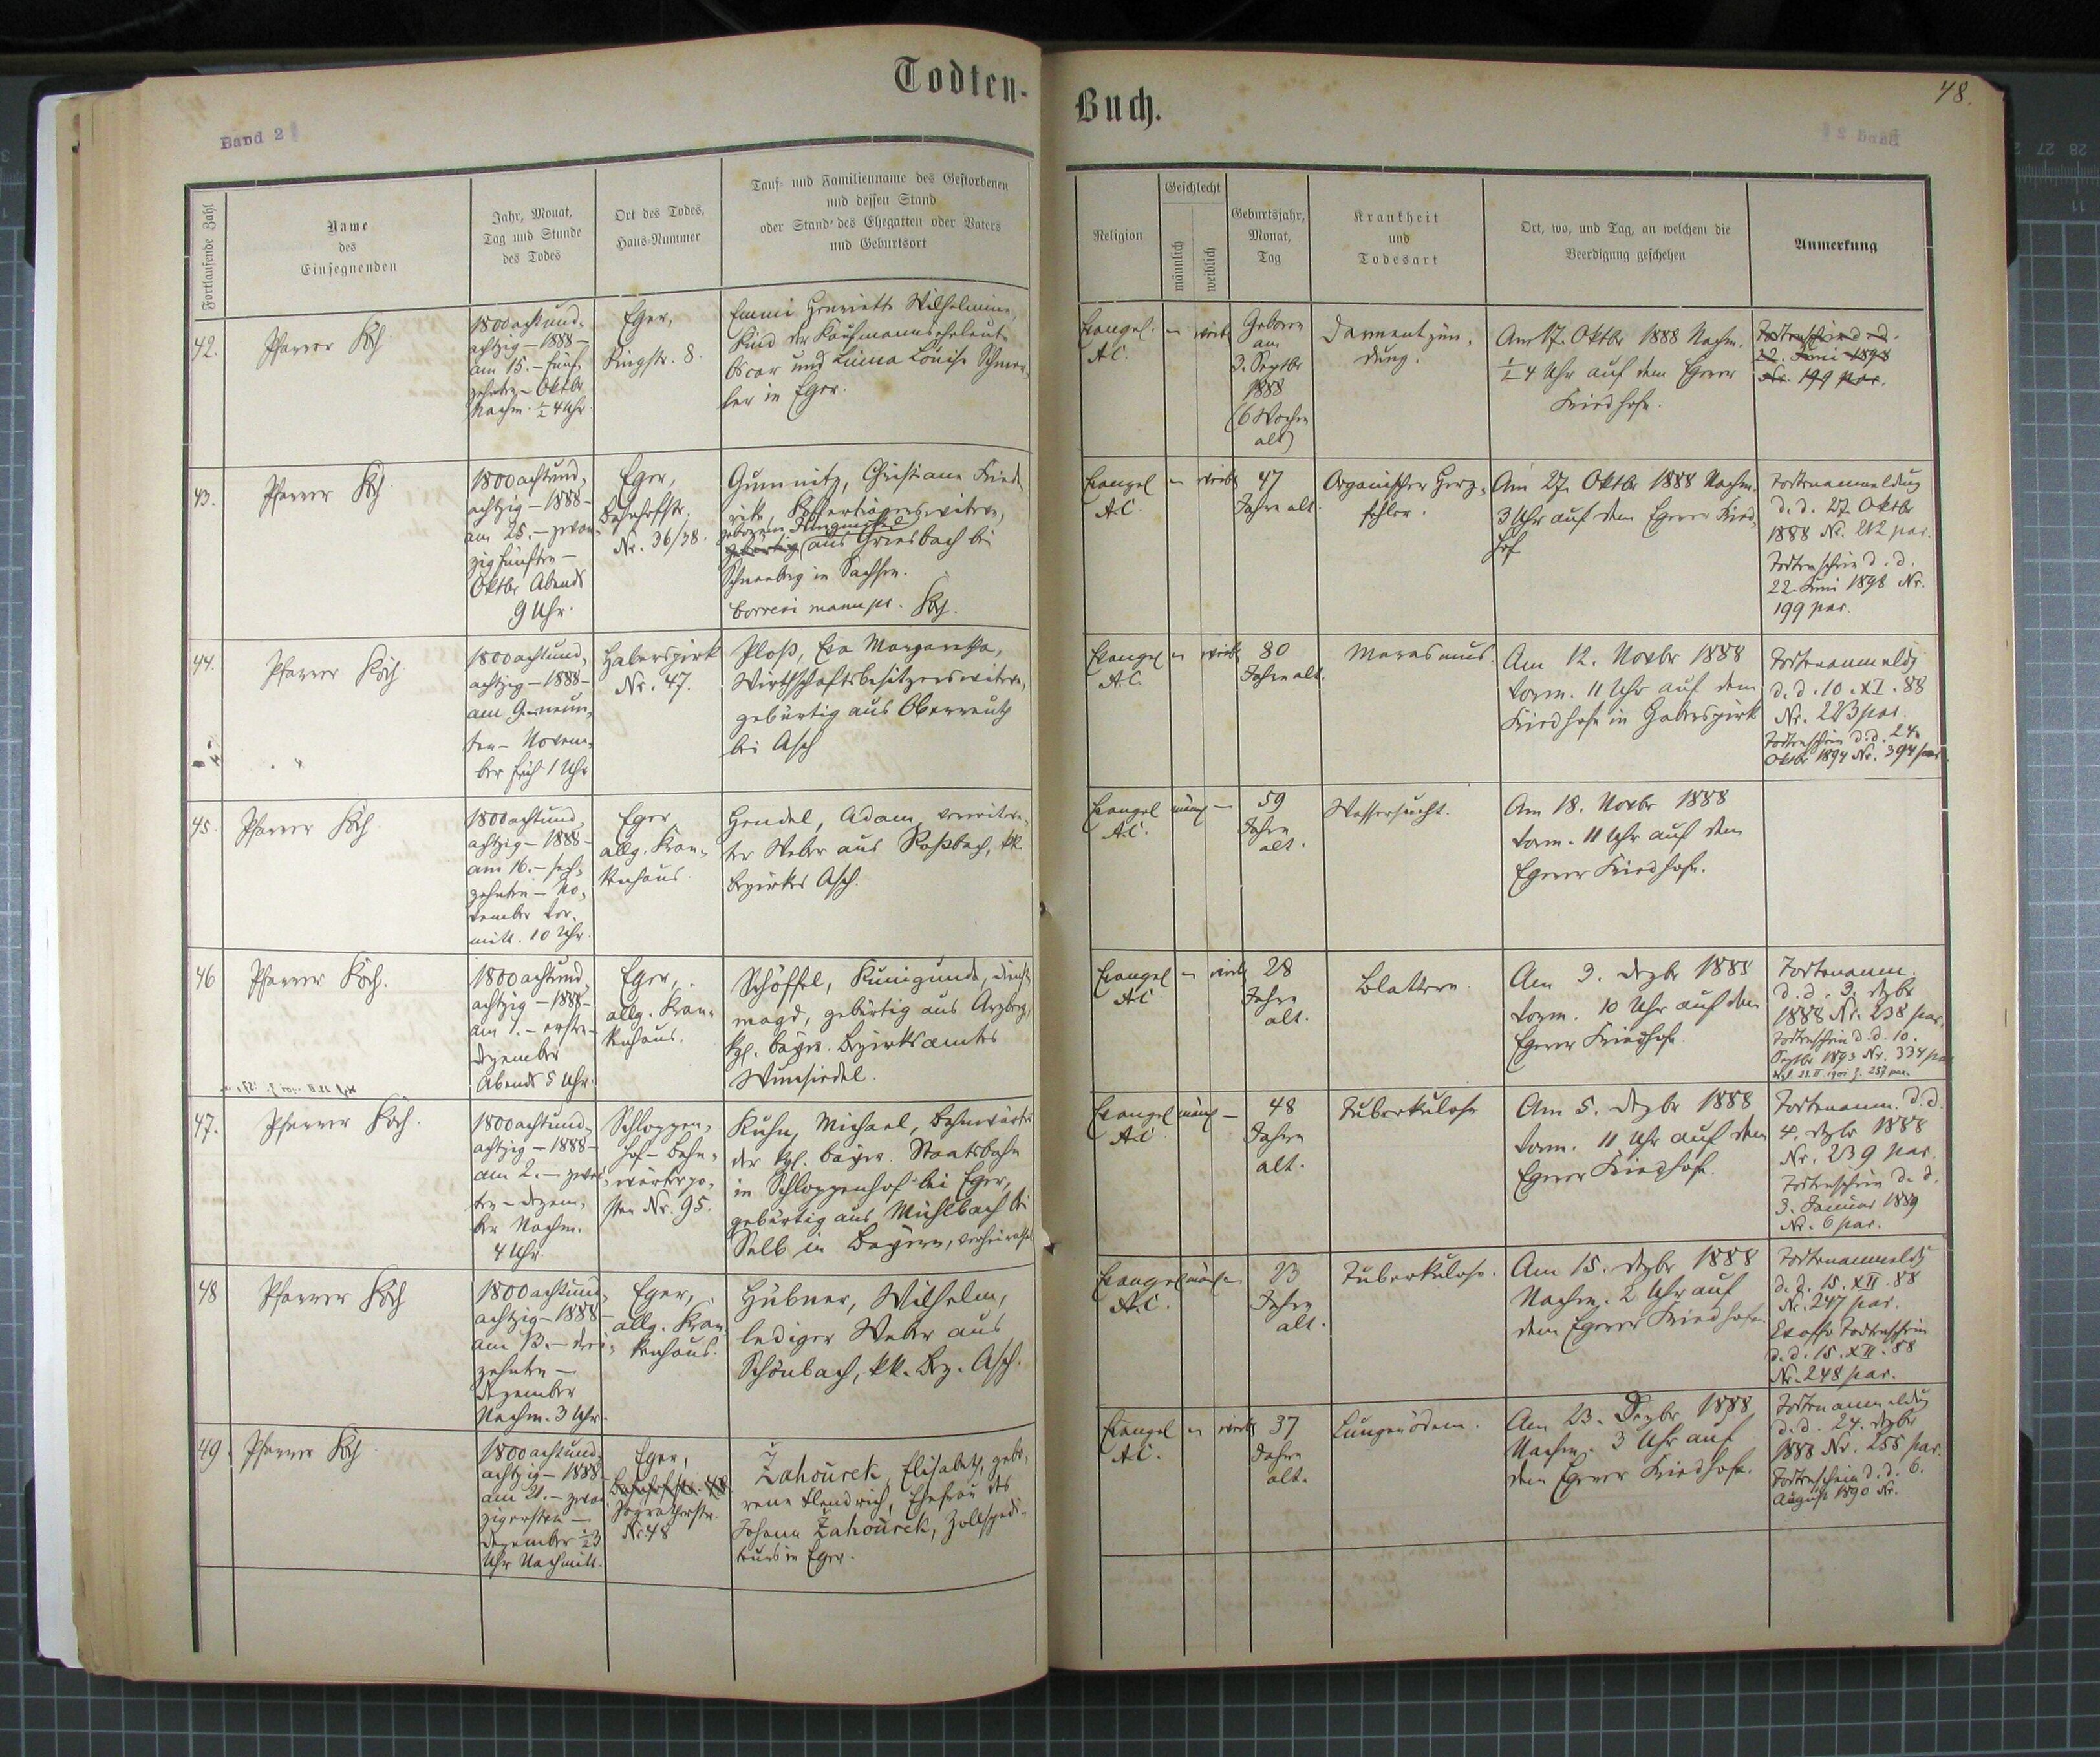 Todten-
Buch.
48.
Band 2
Fortlaufende Zahl
Name
des
Einsegnenden
Jahr, Monat,
Tag und Stunde
des Todes
Ort des Todes,
Haus-Nummer
Tauf- und Familienname des Gestorbenen
und dessen Stand
oder Stand des Ehegatten oder Vaters
und Geburtsort
Religion
Geschlecht
männlich
weiblich
Geburtsjahr,
Monat,
Tag
Krankheit
und
Todesart
Ort, wo, und Tag, an welchem die
Beerdigung geschehen
Anmerkung
42.
Pfarrer Koch
1800 achtund-
achtzig - 1888 -
am 15. - fünf-
zehnten - Oktbr
Nachm. ½ 4 Uhr.
Eger,
Ringstr. 8.
Emmi Henriette Wilhelmine,
Kind der Kaufmannseheleute
Oscar und Luise
in Eger.
Evangel.
A.C.
- weibl
Geboren
am
3. Septbr
1888
(6 Wochen
alt)
Darmentzün-
dung.
Am 17. Oktbr 1888 Nachm.
½ 4 Uhr auf dem Egerer
Friedhofe.
Todtenschein d.d.
22. Juni 1898
Nr. 199 par.
43.
Pfarrer Koch
1800 achtund-
achtzig - 1888 -
am 25. - zwan-
zigfünften -
Oktbr Abends
9 Uhr.
Eger,
Bahnhofstr.
Nr. 36/38.
Gumnitz, Christiane Fried-
rike,
geborene Jungnickel
gebürtig aus Griesbach bei
Schneeberg in Sachsen.
correxi manu pr. Koch.
Evangel
A.C.
- weibl
47
Jahre alt.
Organischer Herz-
fehler.
Am 27. Oktbr 1888 Nachm.
3 Uhr auf dem Egerer Fried-
hof
Todtenanmeldung
d.d. 27. Oktbr
1888 Nr. 212 par.
Todtenschein d.d.
22. Juni 1898 Nr.
199 par.
44.
Pfarrer Koch
1800 achtund-
achtzig - 1888 -
am 9. - neun-
ten - Novem-
ber früh 1 Uhr
Haberspirk
Nr. 47.
Ploß, Eva Margaretha,
Wirthschaftsbesitzerswitwe,
gebürtig aus Oberreuth
bei Asch
Evangel
A.C.
- weibl
80
Jahre alt.
Marasmus.
Am 12. Novbr 1888
Vorm. 11 Uhr auf dem
Friedhofe in Haberspirk
Todtenanmeldg
d.d. 10. XI. 88
Nr. 223 par.
Todtenschein d.d. 24.
Oktbr 1894 Nr. 394 par.
45.
Pfarrer Koch
1800 achtund-
achtzig - 1888 -
am 16. - sech-
zehnten - No-
vember Vor-
mitt. 10 Uhr.
Eger,
allg. Kran-
kenhaus.
Hendel, Adam, verwitwe-
ter Weber aus Roßbach, kk.
Bezirkes Asch.
Evangel
A.C.
männl -
59
Jahre
alt.
Wassersucht.
Am 18. Novbr 1888
Vorm. 11 Uhr auf dem
Egerer Friedhofe.
46
Pfarrer Koch.
1800 achtund-
achtzig - 1888 -
am 1. - ersten -
Dezember
Abends 5 Uhr.
Eger,
allg. Kran-
kenhaus.
Schöffel, Kunigunde, Dienst-
magd, gebürtig aus Arzberg,
kgl. bayr. Bezirksamtes
Wunsiedel.
Evangel
A.C.
- weibl
28
Jahre
alt.
Blattern.
Am 3. Dezbr 1888
Vorm. 10 Uhr auf dem
Egerer Friedhofe.
Todtenanm.
d.d. 3. Dezbr
1888 Nr. 238 par.
Todtenschein d.d. 10.
Septbr 1893 Nr. 334 par
257 par.
47.
Pfarrer Koch.
1800 achtund-
achtzig - 1888 -
am 2. - zwei-
ten - Dezem-
ber Nachm.
4 Uhr.
Schloppen-
hof - Bahn-
wärterpo-
sten Nr. 95.
Kuhn, Michael, Bahnwärter
der kgl. bayer. Staatsbahn
in Schloppenhof bei Eger,
gebürtig aus Mühlbach bei
Selb in Bayern, verheirathet
Evangel
A.C.
männl -
48
Jahre
alt.
Tuberkulose
Am 5. Dezbr 1888
Vorm. 11 Uhr auf dem
Egerer Friedhofe.
Todtenanm. d.d.
4. Dezbr 1888
Nr. 239 par.
Todtenschein d.d.
3. Januar 1889
Nr. 6 par.
48
Pfarrer Koch
1800 achtund-
achtzig - 1888 -
am 13. - drei-
zehnten -
Dezember
Nachm. 3 Uhr.
Eger,
allg. Kran-
kenhaus.
Hübner, Wilhelm,
lediger Weber aus
Schönbach, kk. Bez. Asch.
Evangel
A.C.
männl -
23
Jahre
alt.
Tuberkulose.
Am 15. Dezbr 1888
Nachm. 2 Uhr auf
dem Egerer Friedhofe.
Todtenanmeldg
d.d. 15. XII. 88
Nr. 247 par.
Exoffo Todtenschein
d.d. 15. XII. 88
Nr. 248 par.
49.
Pfarrer Koch
1800 achtund-
achtzig - 1888 -
am 21. - zwan-
zigersten -
Dezember ½ 3
Uhr Nachmitt.
Eger,
Bahnhofstr. 48
Nr. 48
Žahourek, Elisabeth, gebo-
rene Hendrich, Ehefrau des
Johann Žahourek, Zollspedi-
teurs in Eger.
Evangel
A.C.
- weibl
37
Jahre
alt.
Lungenödem.
Am 23. Dezbr 1888
Nachm. 3 Uhr auf
dem Egerer Friedhofe.
Todtenanmeldg
d.d. 24. Dezbr
1888 Nr. 255 par.
Todtenschein d.d. 6.
August 1890 Nr.